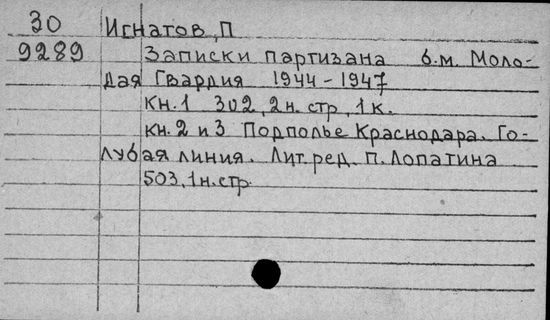 30 Игнатов, П
9289 Записки партизана б.м. Моло-
дая Гвардия 1944-1947
Кн.1 302, 2 н. стр, 1 к.
кн. 2 и 3 Подполье Краснодара. Го-
лубая линия. Лит. ред. П. Лопатина
503, 1 н. стр.